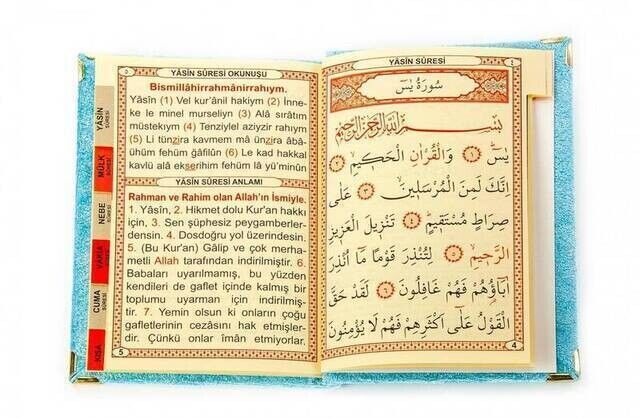 ٥
YÂSÎN SÛRESİ OKUNUŞU
Bismillâhirrahmânirrahıym.
Yâsîn (1) Vel kur'ânil hakiym (2) İnne-
ke le minel murseliyn (3) Alâ sırâtım
müstekıym (4) Tenziylel aziyzir rahıym
(5) Li tünzira kavmem mâ ünzira âbâ-
ühüm fehüm ğâfilûn (6) Le kad hakkal
kavlü alâ ekserihim fehüm lâ yü'minûn
YÂSÎN SÛRESİ ANLAMI
Rahman ve Rahim olan Allah'ın İsmiyle.
1. Yâsîn, 2. Hikmet dolu Kur'an hakkı
için, 3. Sen şüphesiz peygamberler-
densin. 4. Dosdoğru yol üzerindesin.
5. (Bu Kur'an) Gâlip ve çok merha-
metli Allah tarafından indirilmiştir. 6.
Babaları uyarılmamış, bu yüzden
kendileri de gaflet içinde kalmış bir
toplumu uyarman için indirilmiş-
tir. 7. Yemin olsun ki onların çoğu
gafletlerinin cezâsını hak etmişler-
dir. Çünkü onlar îmân etmiyorlar.
5
YÂSİN
SÛRESİ
MÜLK
SÛRESİ
NEBE
SÛRESİ
VAKIA
SÛRESİ
CUMA
SÛRESİ
KISA
YÂSÎN SÛRESİ
٤
سُورَةُ يٰسۤ
بِسْمِ اللّٰهِ الرَّحْمٰنِ الرَّحِيمِ
يٰسۤ ﴿١﴾ وَالْقُرْاٰنِ الْحَكِيمِ ﴿٢﴾
اِنَّكَ لَمِنَ الْمُرْسَلِينَ ﴿٣﴾ عَلٰى
صِرَاطٍ مُسْتَقِيمٍ ﴿٤﴾ تَنْزِيلَ الْعَزِيزِ
الرَّحِيمِ ﴿٥﴾ لِتُنْذِرَ قَوْمًا مَا اُنْذِرَ
اٰبَاؤُهُمْ فَهُمْ غَافِلُونَ ﴿٦﴾ لَقَدْ حَقَّ
الْقَوْلُ عَلٰى اَكْثَرِهِمْ فَهُمْ لَا يُؤْمِنُونَ
4